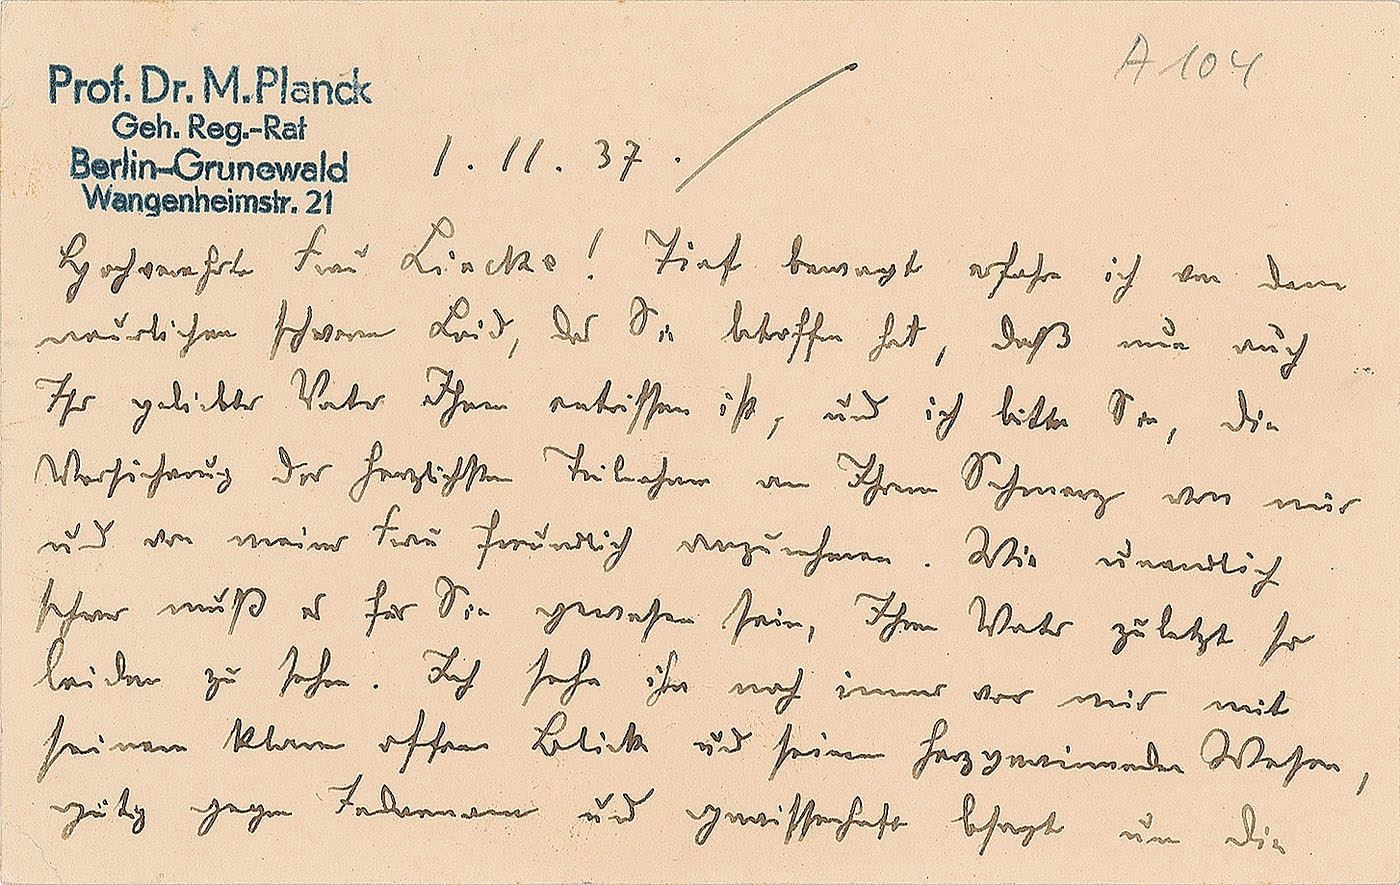 Prof. Dr. M. Planck
Geh. Reg.-Rat
Berlin-Grunewald
Wangenheimstr. 21
A 104
1. 11. 37.
Hochverehrte Frau Lincke! Tief bewegt erfahre ich von dem
neuerlichen schweren Leid, das Sie betroffen hat, daß nun auch
Ihr geliebter Vater Ihnen entrissen ist, und ich bitte Sie, die
Versicherung der herzlichsten Teilnahme an Ihrem Schmerz von mir
und von meiner Frau freundlich anzunehmen. Wie unendlich
schwer muß es für Sie gewesen sein, Ihren Vater zuletzt so
leiden zu sehen. Ich sehe ihn noch immer vor mir mit
seinem klaren offenen Blick und seinem herzgewinnenden Wesen,
gütig gegen Jedermann und gewissenhaft besorgt um die